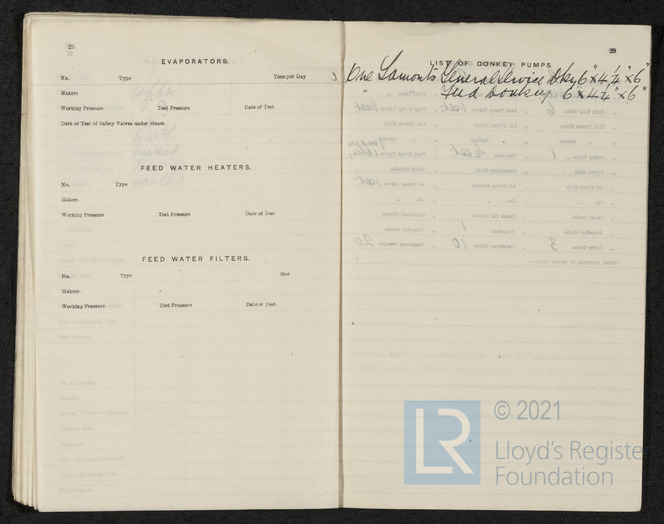 28
EVAPORATORS.
No. Type Tons per Day
Makers
Working Pressure Test Pressure Date of Test
Date of Test of Safety Valves under Steam
FEED WATER HEATERS.
No. Type
Makers
Working Pressure Test Pressure Date of Test
FEED WATER FILTERS.
No. Type Size
Makers
Working Pressure Test Pressure Date of Test
29
LIST OF DONKEY PUMPS.
One Lamont's General Service Dky 6" x 4 1/4" x 6"
" Feed Donkey 6" x 4 1/4" x 6"
LR © 2021
Lloyd's Register
Foundation